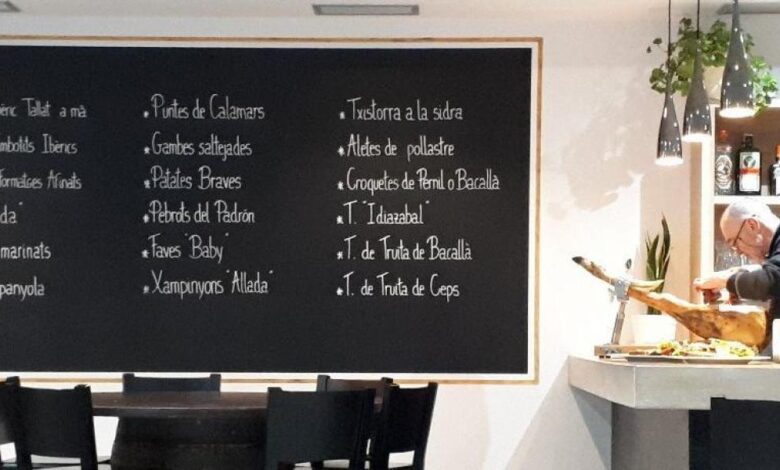 Tallat a mà
Ibèrics
Formatges Afinats
marinats
* Puntes de Calamars
* Gambes saltejades
* Patates Braves
* Pebrots del Padrón
* Faves "Baby"
* Xampinyons "Allada"
* Txistorra a la sidra
* Aletes de pollastre
* Croquetes de Pernil o Bacallà
* T. "Idiazabal"
* T. de Truita de Bacallà
* T. de Truita de Ceps